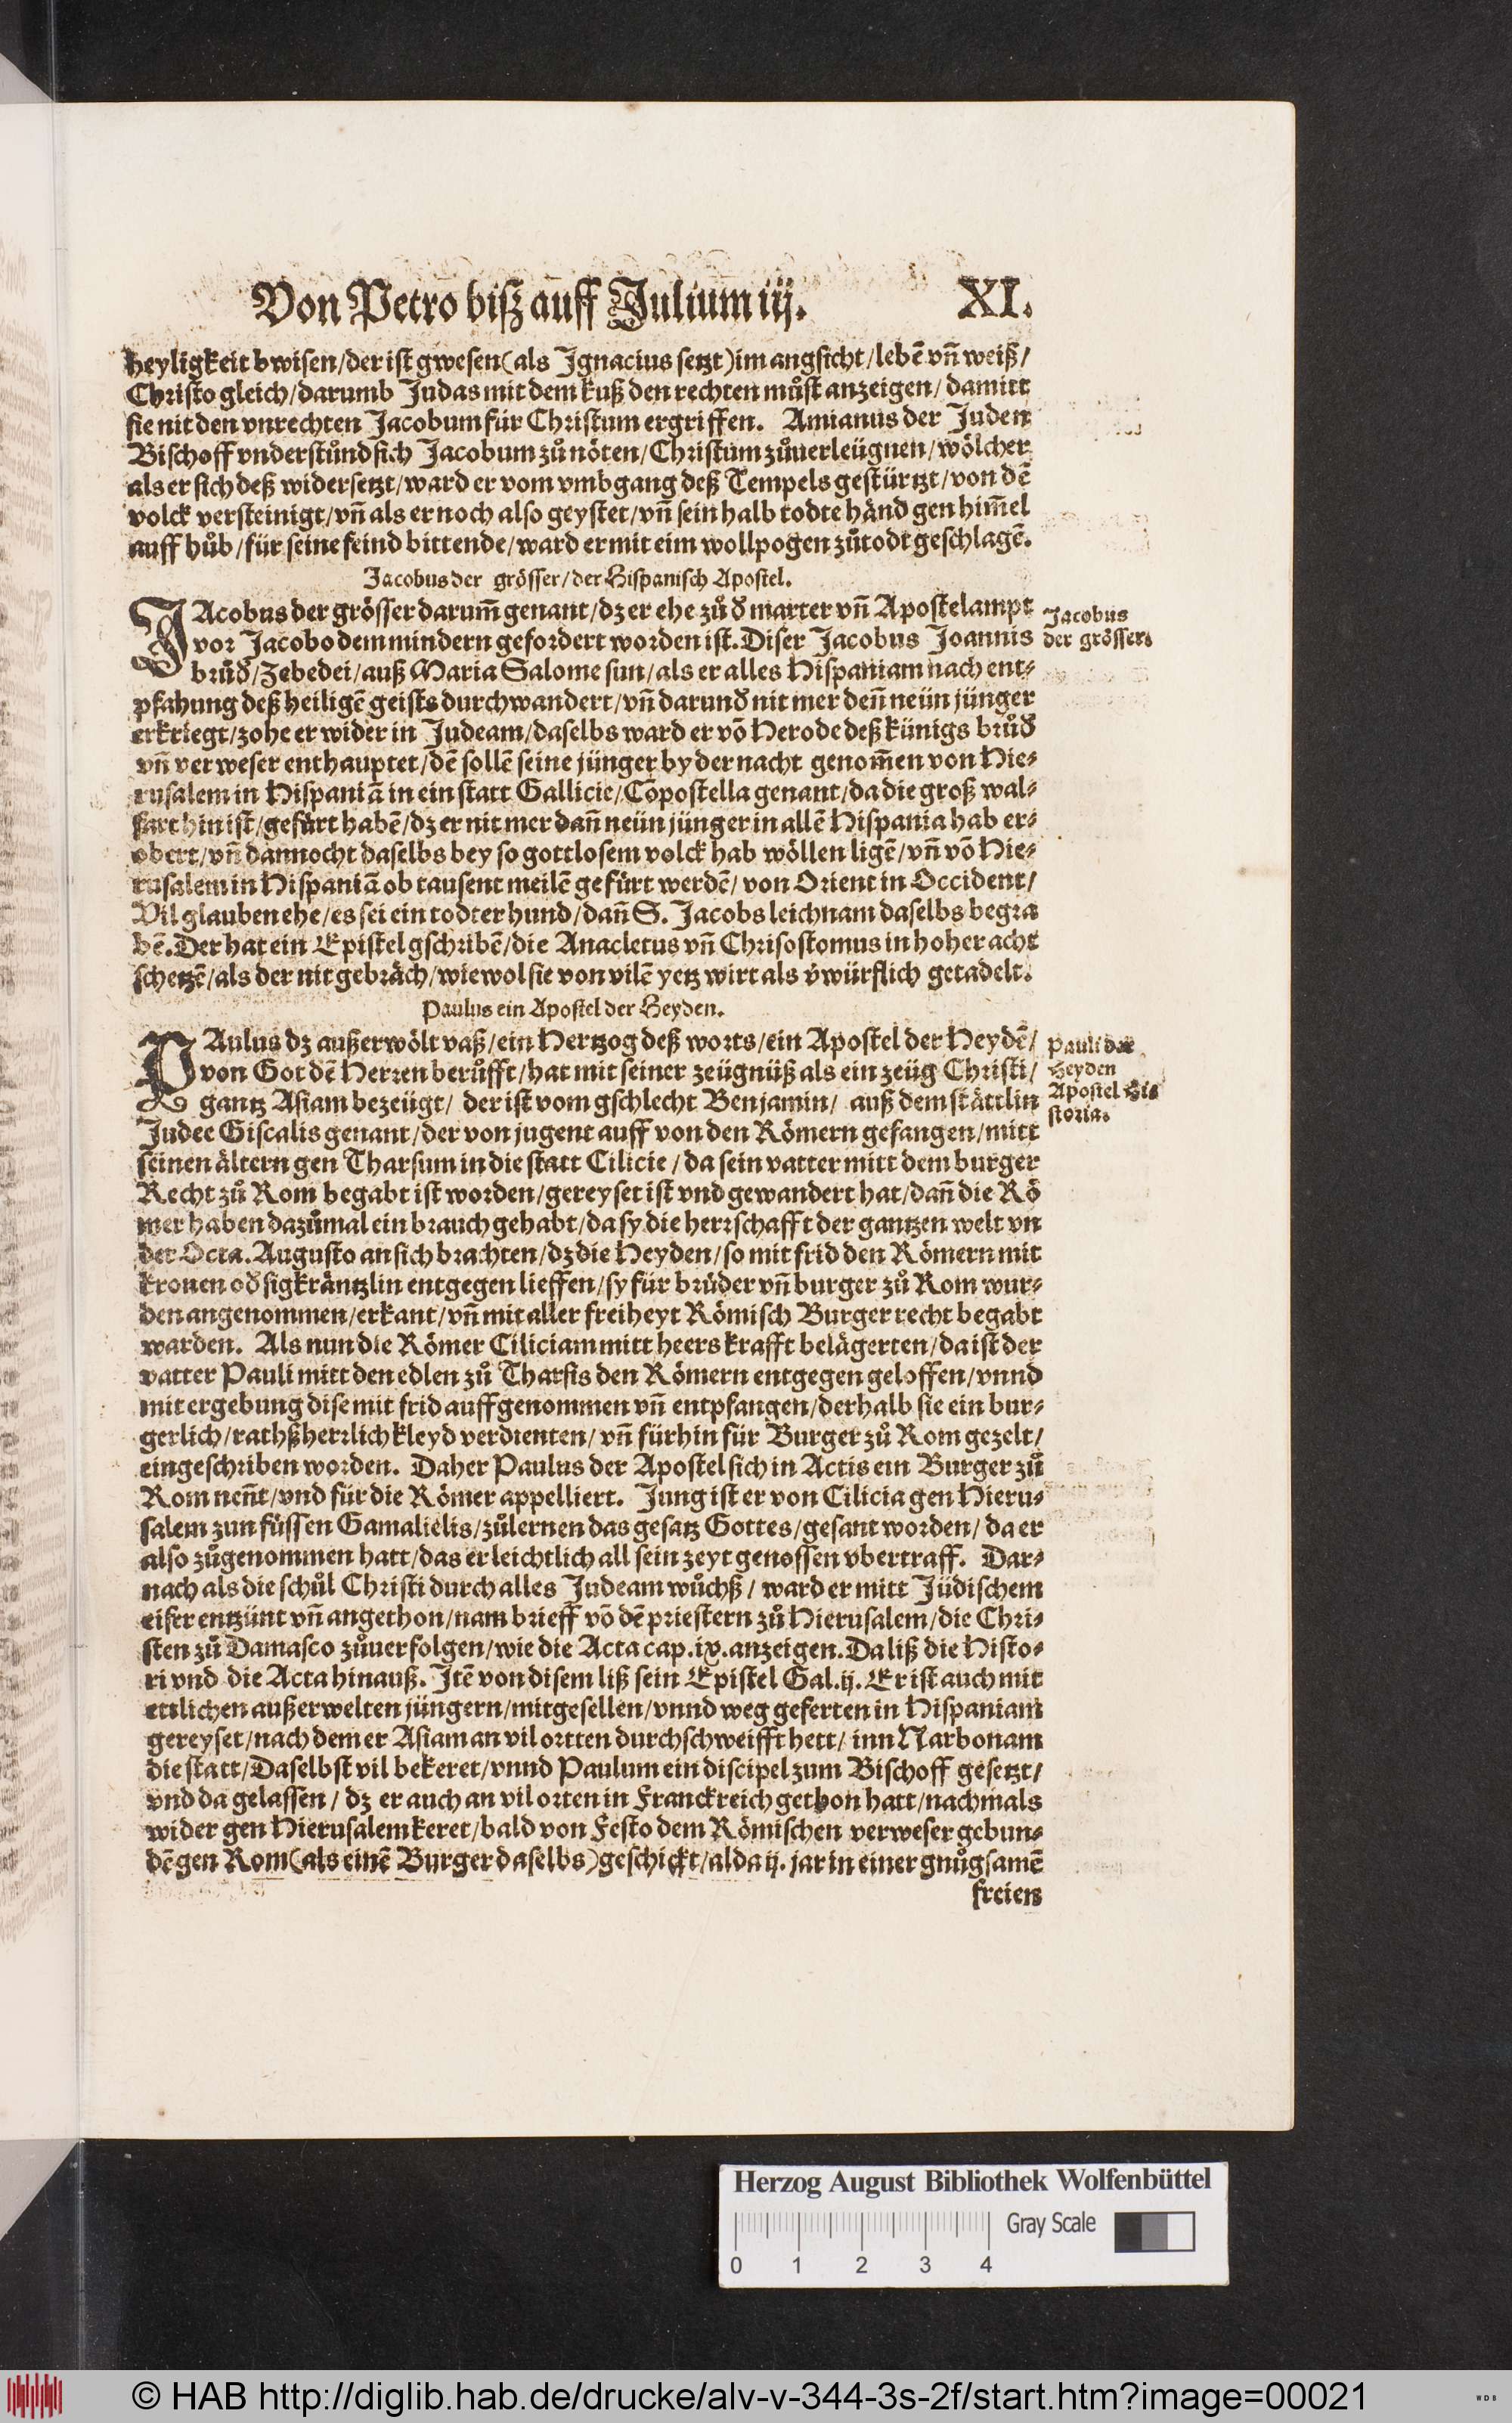 Von Petro biß auff Julium iij. XI.
heyligkeit bwisen/der ist gwesen(als Ignacius setzt)im angsicht/lebē vñ weiß/
Christo gleich/darumb Judas mit dem kuß den rechten můst anzeigen/damitt
sie nit den vnrechten Jacobum für Christum ergriffen. Amianus der Juden
Bischoff vnderstůnd sich Jacobum zů nöten/Christum zůuerleügnen/wölcher
als er sich deß widersetzt/ward er vom vmbgang deß Tempels gestürtzt/von dē
volck versteinigt/vñ als er noch also geystet/vñ sein halb todte händ gen him̄el
auff hůb/für seine feind bittende/ward er mit eim wollpogen zů todt geschlagē.
Jacobus der grösser/der Hispanisch Apostel.
JAcobus der grösser darum̄ genant/dz er ehe zů ð marter vñ Apostelampt
vor Jacobo dem mindern gefordert worden ist. Diser Jacobus Joannis
brůð/Zebedei/auß Maria Salome sun/als er alles Hispaniam nach ent⸗
pfahung deß heiligē geists durchwandert/vñ darunð nit mer deñ neün jünger
erkriegt/zohe er wider in Judeam/daselbs ward er vō Herode deß künigs brůð
vñ verweser enthauptet/dē sollē seine jünger by der nacht genom̄en von Hie⸗
rusalem in Hispaniā in ein statt Gallicie/Cōpostella genant/da die groß wal⸗
fart hin ist/gefürt habē/dz er nit mer dañ neün jünger in allē Hispania hab er⸗
obert/vñ dannocht daselbs bey so gottlosem volck hab wöllen ligē/vñ vō Hie⸗
rusalem in Hispaniā ob tausent meilē gefürt werdē/von Orient in Occident/
Vil glauben ehe/es sei ein todter hund/dañ S. Jacobs leichnam daselbs begra
bē. Der hat ein Epistel gschribē/die Anacletus vñ Chrisostomus in hoher acht
schetzē/als der nit gebräch/wiewol sie von vilē yetz wirt als v̓würflich getadelt.
Jacobus
der grösser.
Paulus ein Apostel der Heyden.
PAulus dz außerwölt vaß/ein Hertzog deß worts/ein Apostel der Heydē/
von Got dē Herren berůfft/hat mit seiner zeügnüß als ein zeüg Christi/
gantz Asiam bezeügt/ der ist vom gschlecht Benjamin/ auß dem stättlin
Judee Giscalis genant/der von jugent auff von den Römern gefangen/mitt
seinen ältern gen Tharsum in die statt Cilicie/da sein vatter mitt dem burger
Recht zů Rom begabt ist worden/gereyset ist vnd gewandert hat/dañ die Rö
mer haben dazůmal ein brauch gehabt/da sy die herrschafft der gantzen welt vn
der Octa. Augusto an sich brachten/dz die Heyden/so mit frid den Römern mit
kronen oð sigkräntzlin entgegen lieffen/sy für brüder vñ burger zů Rom wur⸗
den angenommen/erkant/vñ mit aller freiheyt Römisch Burger recht begabt
warden. Als nun die Römer Ciliciam mitt heers krafft belägerten/da ist der
vatter Pauli mitt den edlen zů Tharsis den Römern entgegen geloffen/vnnd
mit ergebung dise mit frid auffgenommen vñ entpfangen/derhalb sie ein bur⸗
gerlich/rathßherrlich kleyd verdienten/vñ fürhin für Burger zů Rom gezelt/
eingeschriben worden. Daher Paulus der Apostel sich in Actis ein Burger zů
Rom neñt/vnd für die Römer appelliert. Jung ist er von Cilicia gen Hieru⸗
salem zun füssen Gamalielis/zůlernen das gesatz Gottes/gesant worden/da er
also zůgenommen hatt/das er leichtlich all sein zeyt genossen vbertraff. Dar⸗
nach als die schůl Christi durch alles Judeam wůchß/ ward er mitt Jüdischem
eifer entzünt vñ angethon/nam brieff vō dē priestern zů Hierusalem/die Chri⸗
sten zů Damasco zůuerfolgen/wie die Acta cap.ix.anzeigen. Da liß die Histo⸗
ri vnd die Acta hinauß. Itē von disem liß sein Epistel Gal.ij. Er ist auch mit
ettlichen außerwelten jüngern/mitgesellen/vnnd weg geferten in Hispaniam
gereyset/nach dem er Asiam an vil ortten durchschweifft hett/ inn Narbonam
die statt/Daselbst vil bekeret/vnnd Paulum ein discipel zum Bischoff gesetzt/
vnd da gelassen/ dz er auch an vil orten in Franckreich gethon hatt/nachmals
wider gen Hierusalem keret/bald von Festo dem Römischen verweser gebun⸗
dē gen Rom(als einē Burger daselbs)geschickt/alda ij. jar in einer gnůgsamē
freien
Pauli der
Heyden
Apostel His
storia.
Herzog August Bibliothek Wolfenbüttel
Gray Scale
0 1 2 3 4
© HAB http://diglib.hab.de/drucke/alv-v-344-3s-2f/start.htm?image=00021
WDB